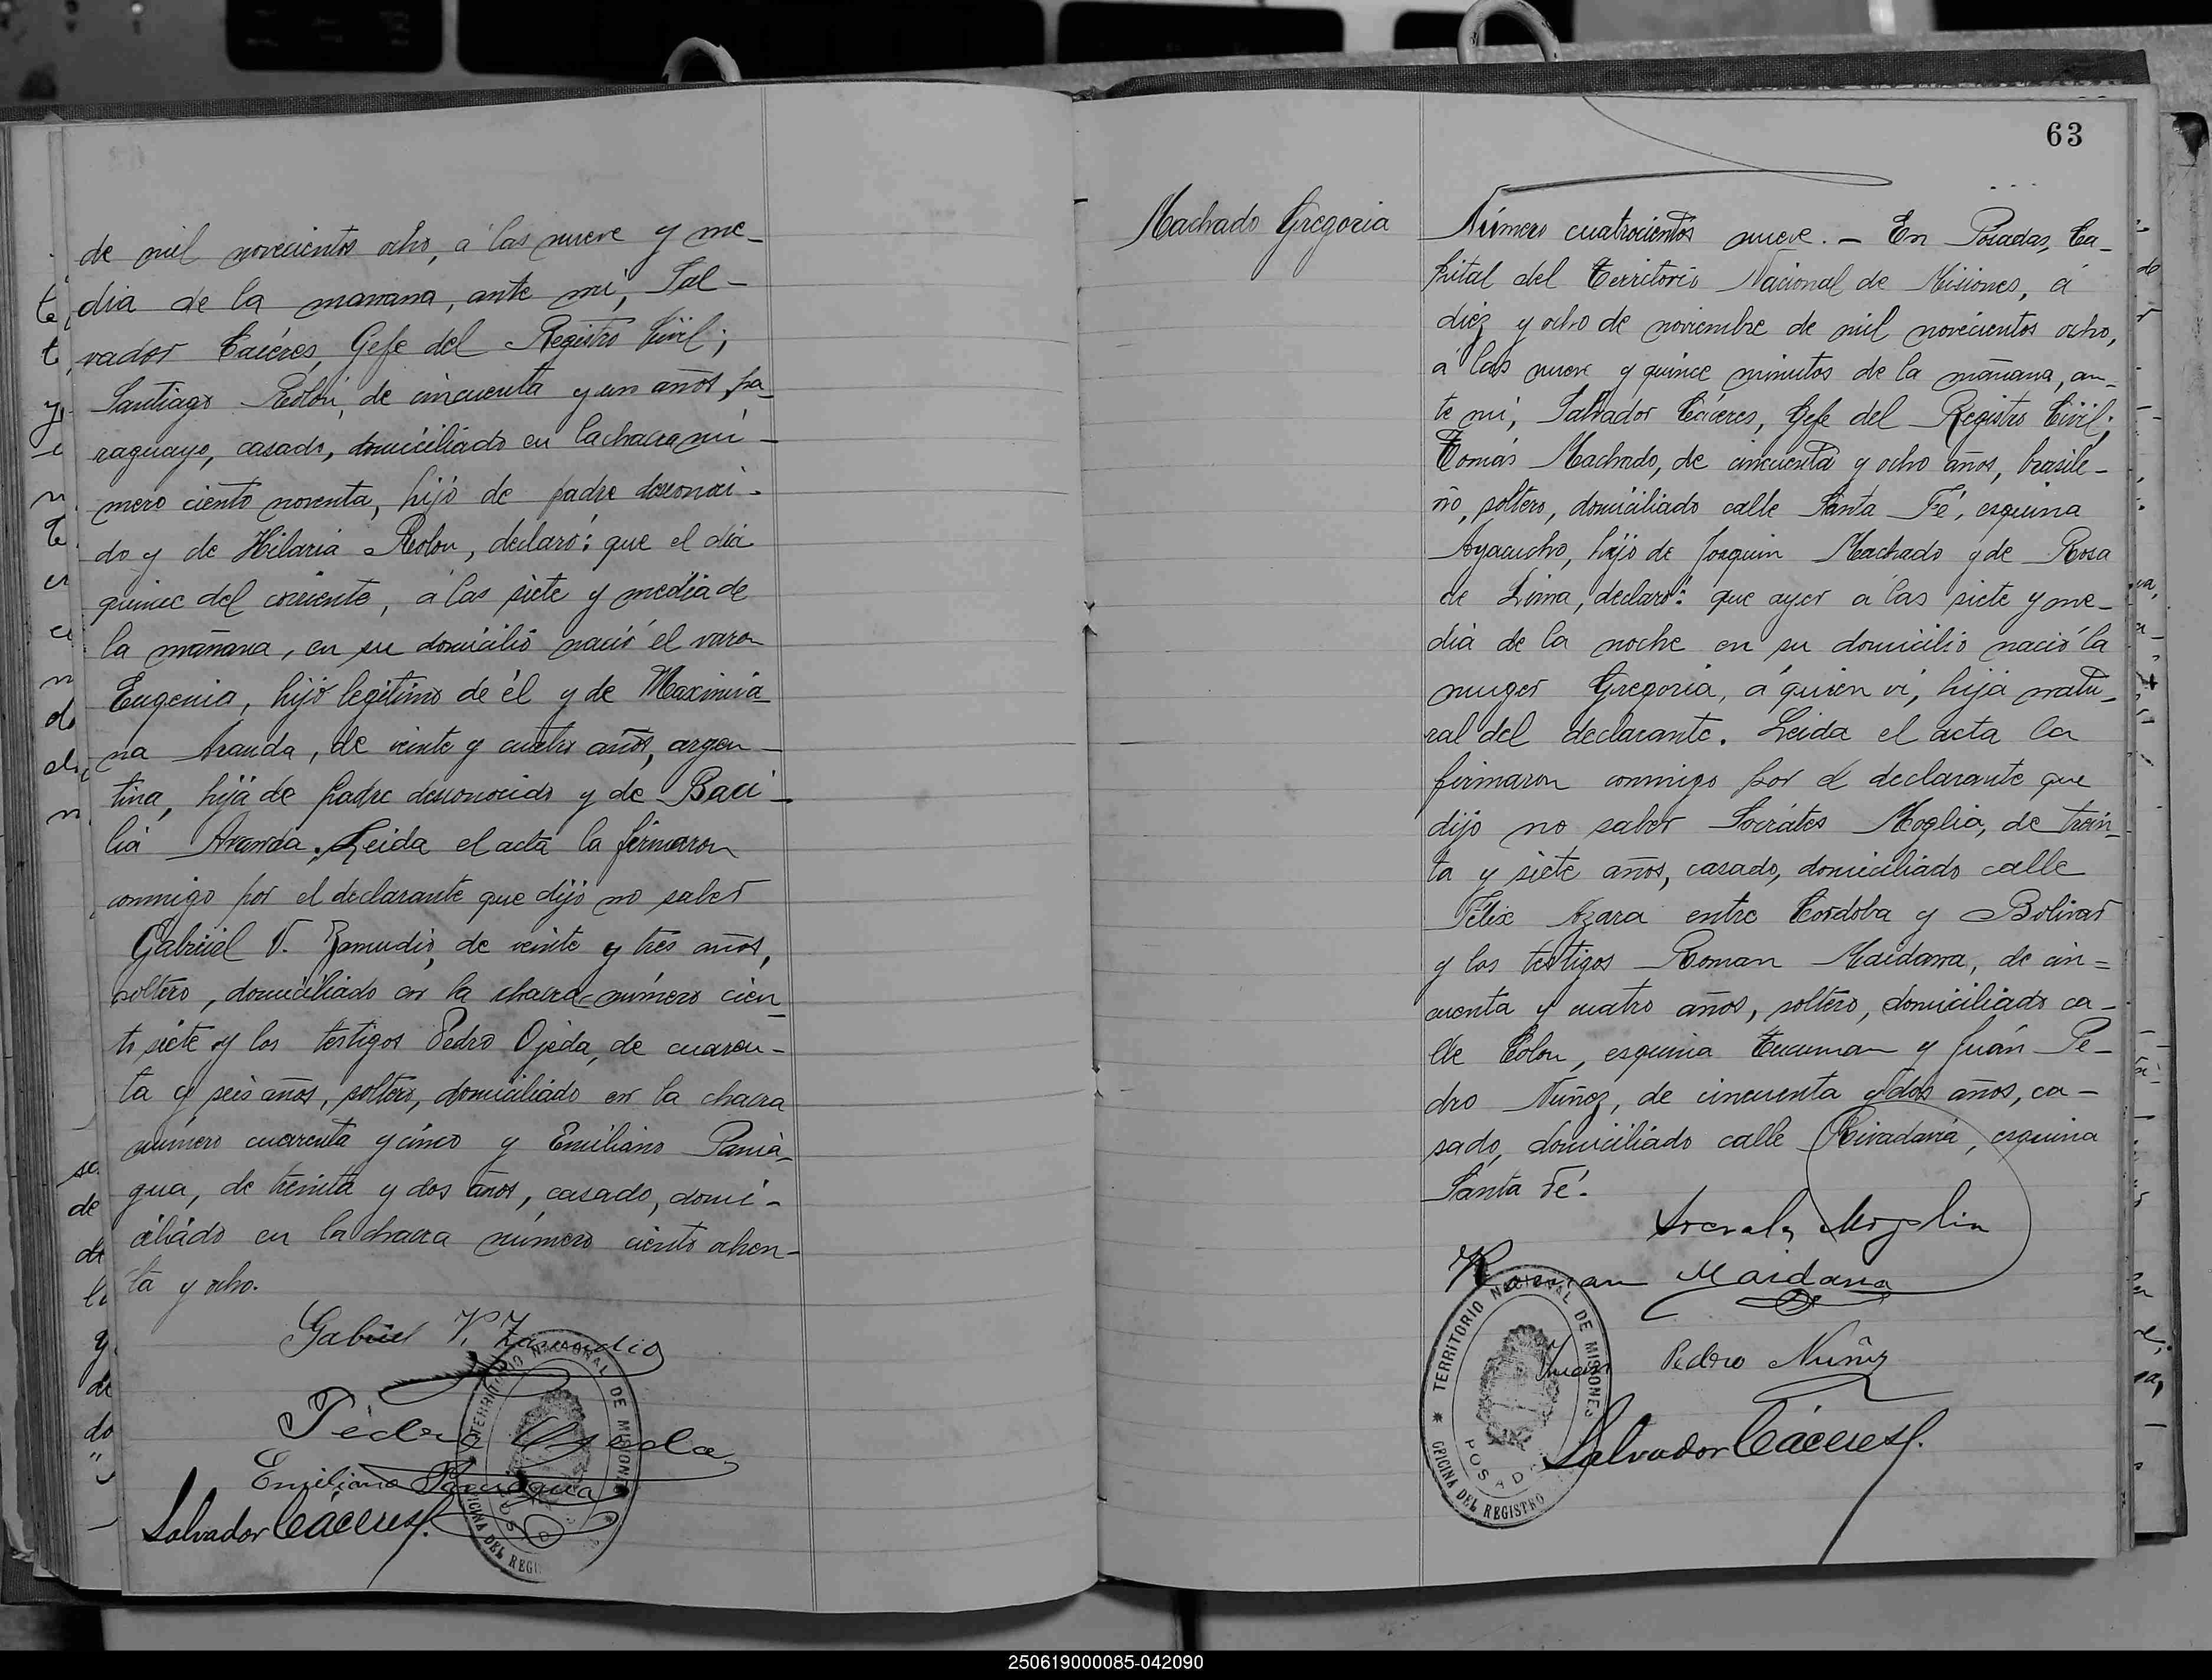 de mil novecientos ocho, á las nueve y me-
dia de la manana, ante mi, Sal-
vador Cáceres, Gefe del Registro Civil;
Santiago Rolón, de cincuenta y un años, pa-
raguayo, casado, domiciliado en la chacra nú-
mero ciento noventa, hijo de padre desconoci-
do y de Hilaria Rolon, declaró: que el dia
quince del corriente, á las siete y media de
la mañana, en su domicilio nació el varon
Eugenio, hijo legitimo de él y de Maximia-
na Aranda, de veinte y cuatro años, argen-
tina, hija de padre desconocido y de Baci-
lia Aranda. Leida el acta la firmaron
conmigo por el declarante que dijo no saber
Gabriel V. Zamudio, de veinte y tres años,
soltero, domiciliado en la chacra número cien-
to siete y los testigos Pedro Ojeda, de cuaren-
ta y seis años, soltero, domiciliado en la chacra
número cuarenta y cinco y Emiliano Pania-
gua, de treinta y dos años, casado, domi-
ciliado en la chacra número ciento ochen-
ta y ocho.
Gabriel V. Zamudio
Pedro Ojeda
Emiliano Paniagua
Salvador Cáceres
TERRITORIO NACIONAL DE MISIONES
OFICINA DEL REGI
63
Machado Gregoria
Número cuatrocientos nueve. - En Posadas, Ca-
pital del Territorio Nacional de Misiones, á
diez y ocho de noviembre de mil novecientos ocho,
á las nueve y quince minutos de la mañana, an-
te mi, Salvador Cáceres, Gefe del Registro Civil;
Tomás Machado, de cincuenta y ocho años, brasile-
ño, soltero, domiciliado calle Santa Fé, esquina
Ayacucho, hijo de Joaquin Machado y de Rosa
de Lima, declaró: que ayer á las siete y me-
dia de la noche en su domicilio nació la
muger Gregoria, á quien vi, hija natu-
ral del declarante. Leida el acta la
firmaron conmigo por el declarante que
dijo no saber Socrátes Moglia, de trein-
ta y siete años, casado, domiciliado calle
Félix Azara entre Cordoba y Bolivar
y los testigos Roman Maidana, de cin=
cuenta y cuatro años, soltero, domiciliado ca-
lle Colon, esquina Tucuman y Juán Pe-
dro Núñez, de cincuenta y dos años, ca-
sado, domiciliado calle Rivadavia, esquina
Santa Fé.
Socrates Moglia
Roman Maidana
Juan Pedro Nuñez
Salvador Cáceres
TERRITORIO NACIONAL DE MISIONES
POSAD
OFICINA DEL REGISTRO
250619000085-042090